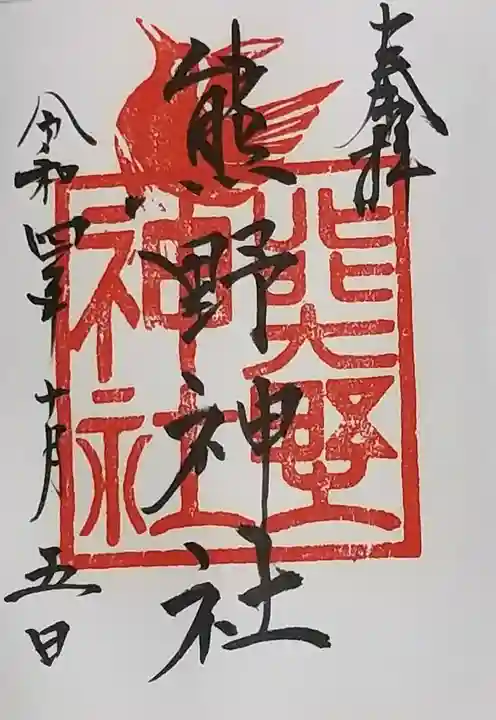 奉拝
熊野神社
熊野
神社
令和四年十月五日